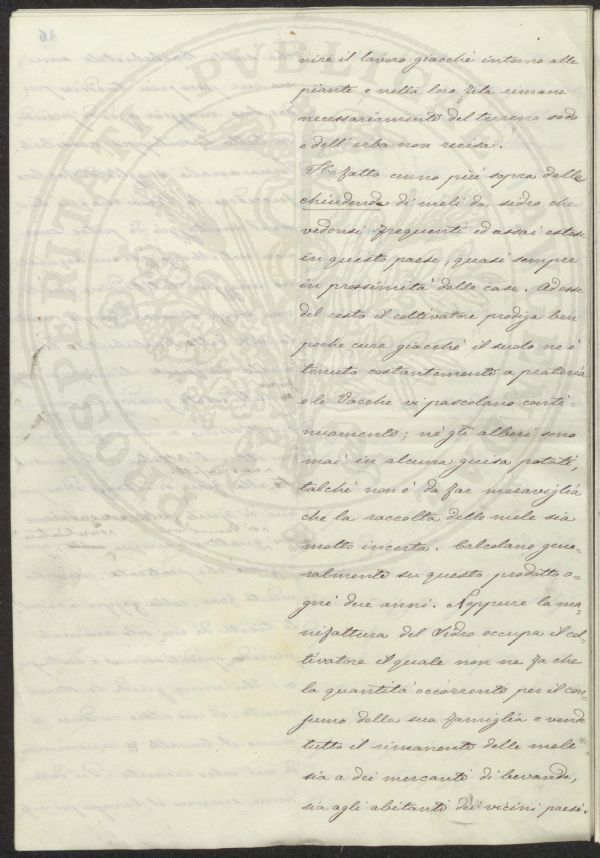 nire il lavoro giacchè intorno alle
piante e nella loro fila rimane
necessariamente del terreno sodo
e dell'erba non recisa.
Ho fatto cenno più sopra delle
chiudende di meli da sidro che
vedonsi frequenti ed assai estese
in questo paese, quasi sempre
in prossimità delle case. Adesse
del resto il coltivatore prodiga ben
poche cure giacchè il suolo ne è
tenuto costantemente a prateria
e le Vacche vi pascolano conti-
nuamente; nè gli alberi sono
mai in alcuna guisa potati,
talchè non è da far meraviglia
che la raccolta delle mele sia
molto incerta. Calcolano gene=
ralmente su questo prodotto o=
gni due anni. Neppure la ma=
nifattura del Sidro occupa il col=
tivatore il quale non ne fa che
la quantità occorrente per il con=
sumo della sua famiglia e vende
tutto il rimanente delle mele
sia a dei mercanti di bevande,
sia agli abitanti dei vicini paesi.